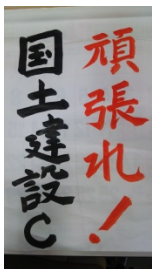 頑張れ!
国土建設C